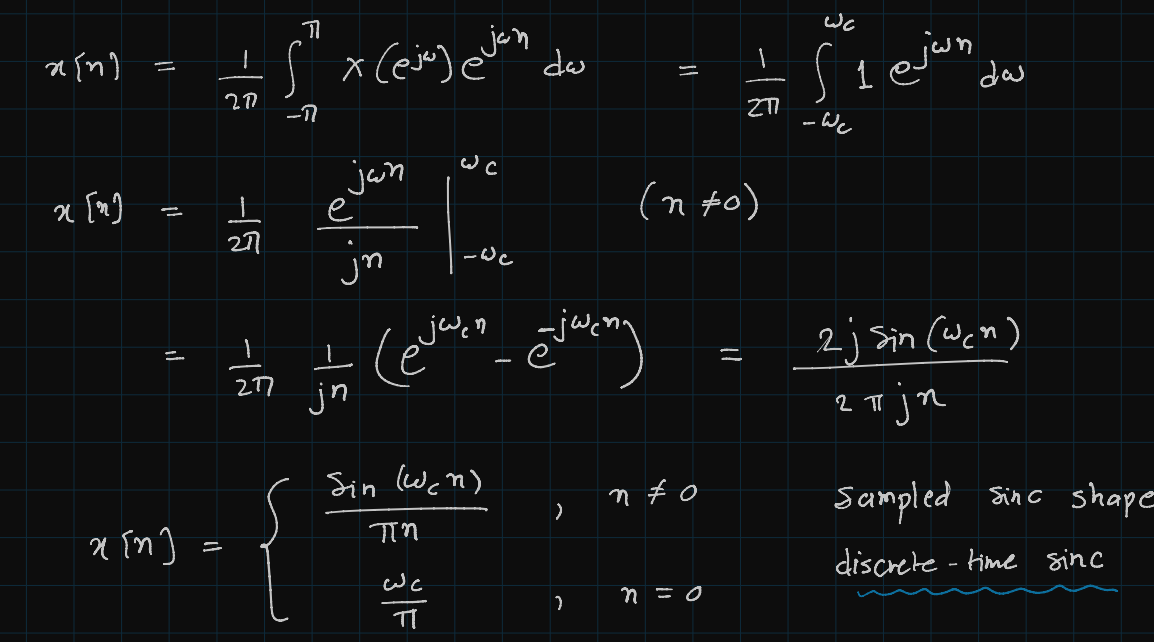 x[n] = 1/2π ∫_{-π}^{π} X(e^{jω}) e^{jωn} dω = 1/2π ∫_{-ω_c}^{ω_c} 1 e^{jωn} dω
x[n] = 1/2π e^{jωn}/jn |_{-ω_c}^{ω_c} (n ≠ 0)
= 1/2π 1/jn (e^{jω_c n} - e^{-jω_c n}) = 2j sin(ω_c n)/2πjn
x[n] = { sin(ω_c n)/πn , n ≠ 0
ω_c/π , n = 0
Sampled sinc shape
discrete-time sinc